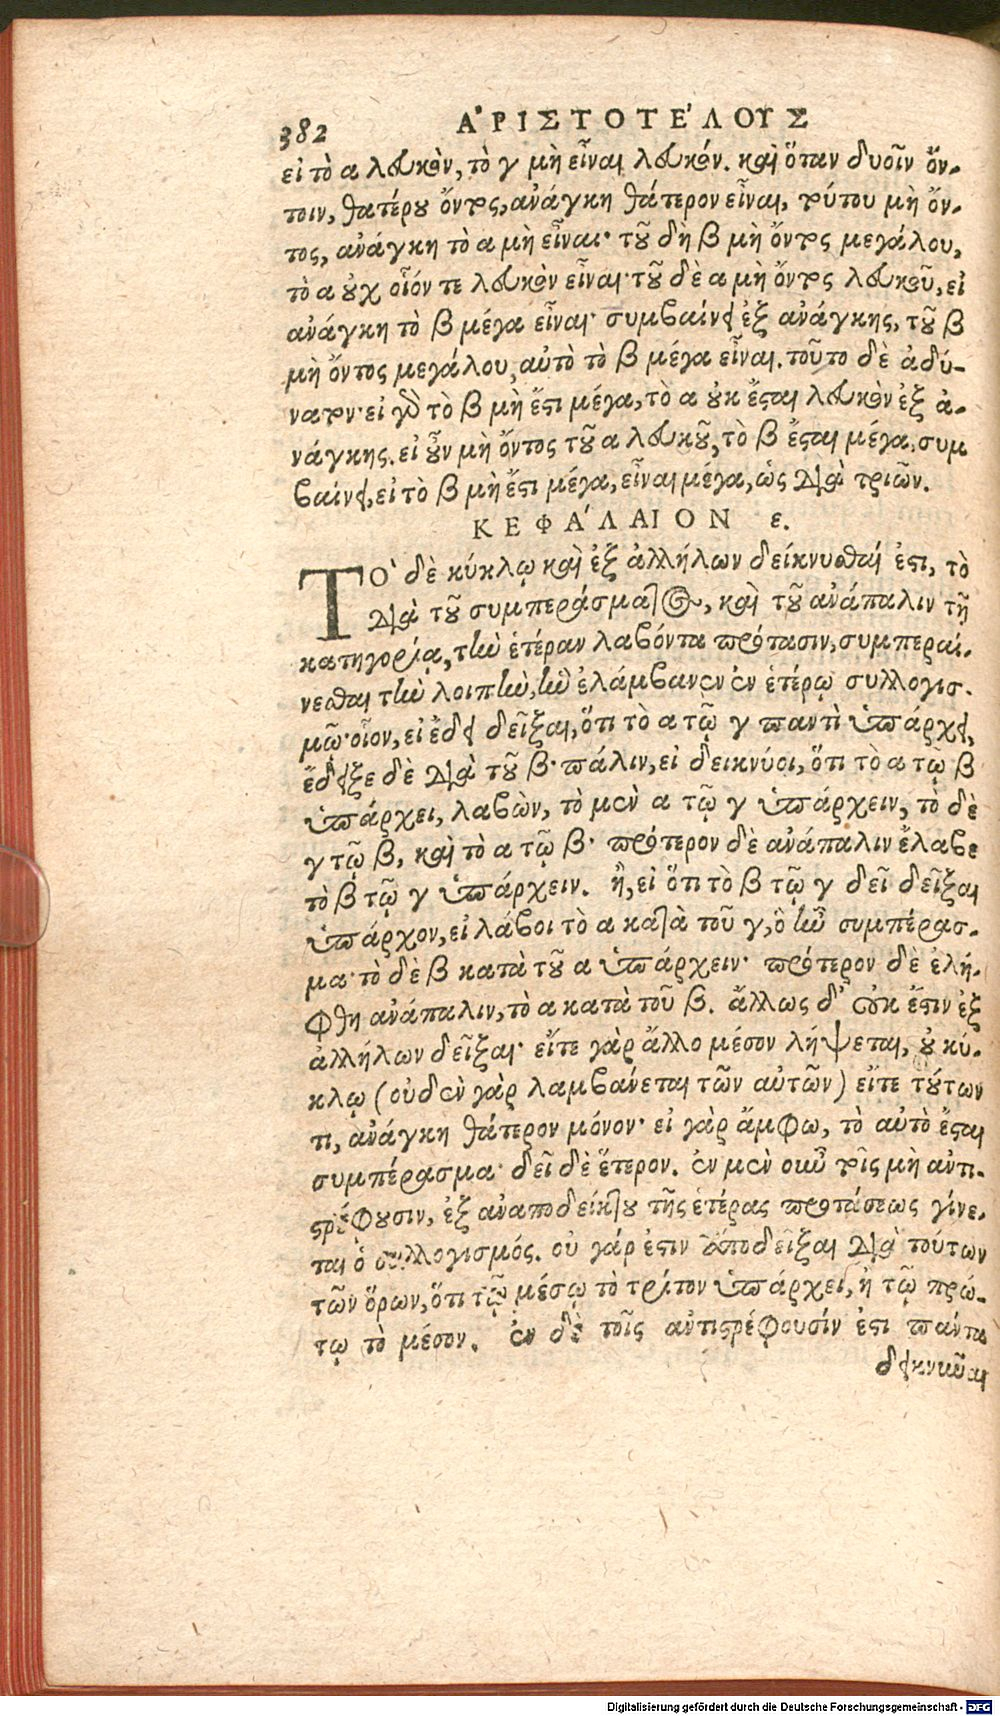 382 ἈΡΙΣΤΟΤΈΛΟΥΣ
εἰ τὸ α λευκὸν, τὸ γ μὴ εἶναι λευκόν. καὶ ὅταν δυοῖν ὄν-
τοιν, θατέρου ὄντος, ἀνάγκη θάτερον εἶναι, τούτου μὴ ὄν-
τος, ἀνάγκη τὸ α μὴ εἶναι· τοῦ δὴ β μὴ ὄντος μεγάλου,
τὸ α οὐχ οἷόν τε λευκὸν εἶναι· τοῦ δὲ α μὴ ὄντος λευκοῦ, εἰ
ἀνάγκη τὸ β μέγα εἶναι· συμβαίνει ἐξ ἀνάγκης, τοῦ β
μὴ ὄντος μεγάλου, αὐτὸ τὸ β μέγα εἶναι. τοῦτο δὲ ἀδύ-
νατον· εἰ γὰρ τὸ β μὴ ἔστι μέγα, τὸ α οὐκ ἔσται λευκὸν ἐξ ἀ-
νάγκης. εἰ οὖν μὴ ὄντος τοῦ α λευκοῦ, τὸ β ἔσται μέγα, συμ
βαίνει, εἰ τὸ β μὴ ἔστι μέγα, εἶναι μέγα, ὡς διὰ τριῶν.
ΚΕΦΆΛΑΙΟΝ ε.
ΤῸ δὲ κύκλῳ καὶ ἐξ ἀλλήλων δείκνυσθαί ἐστι, τὸ
διὰ τοῦ συμπεράσματος, καὶ τοῦ ἀνάπαλιν τῇ
κατηγορίᾳ, τὴν ἑτέραν λαβόντα πρότασιν, συμπεραί-
νεσθαι τὴν λοιπὴν, ἣν ἐλάμβανεν ἐν ἑτέρῳ συλλογισ-
μῷ· οἷον, εἰ ἔδει δεῖξαι, ὅτι τὸ α τῷ γ παντὶ ὑπάρχει,
ἔδειξε δὲ διὰ τοῦ β· πάλιν, εἰ δεικνύοι, ὅτι τὸ α τῷ β
ὑπάρχει, λαβὼν, τὸ μὲν α τῷ γ ὑπάρχειν, τὸ δὲ
γ τῷ β, καὶ τὸ α τῷ β· πρότερον δὲ ἀνάπαλιν ἔλαβε
τὸ β τῷ γ ὑπάρχειν. ἢ, εἰ ὅτι τὸ β τῷ γ δεῖ δεῖξαι
ὑπάρχον, εἰ λάβοι τὸ α κατὰ τοῦ γ, ὃ ἦν συμπέρασ-
μα· τὸ δὲ β κατὰ τοῦ α ὑπάρχειν· πρότερον δὲ ἐλή-
φθη ἀνάπαλιν, τὸ α κατὰ τοῦ β. ἄλλως δ’ οὐκ ἔστιν ἐξ
ἀλλήλων δεῖξαι· εἴτε γὰρ ἄλλο μέσον λήψεται, οὐ κύ-
κλῳ (οὐδὲν γὰρ λαμβάνεται τῶν αὐτῶν) εἴτε τούτων
τι, ἀνάγκη θάτερον μόνον· εἰ γὰρ ἄμφω, τὸ αὐτὸ ἔσται
συμπέρασμα· δεῖ δὲ ἕτερον. ἐν μὲν οὖν τοῖς μὴ ἀντι-
στρέφουσιν, ἐξ ἀναποδείκτου τῆς ἑτέρας προτάσεως γίνε-
ται ὁ συλλογισμός. οὐ γάρ ἐστιν ἀποδεῖξαι διὰ τούτων
τῶν ὅρων, ὅτι τῷ μέσῳ τὸ τρίτον ὑπάρχει, ἢ τῷ πρώ-
τῳ τὸ μέσον. ἐν δὲ τοῖς ἀντιστρέφουσίν ἐστι πάντα
δεικνύναι
Digitalisierung gefördert durch die Deutsche Forschungsgemeinschaft - DFG